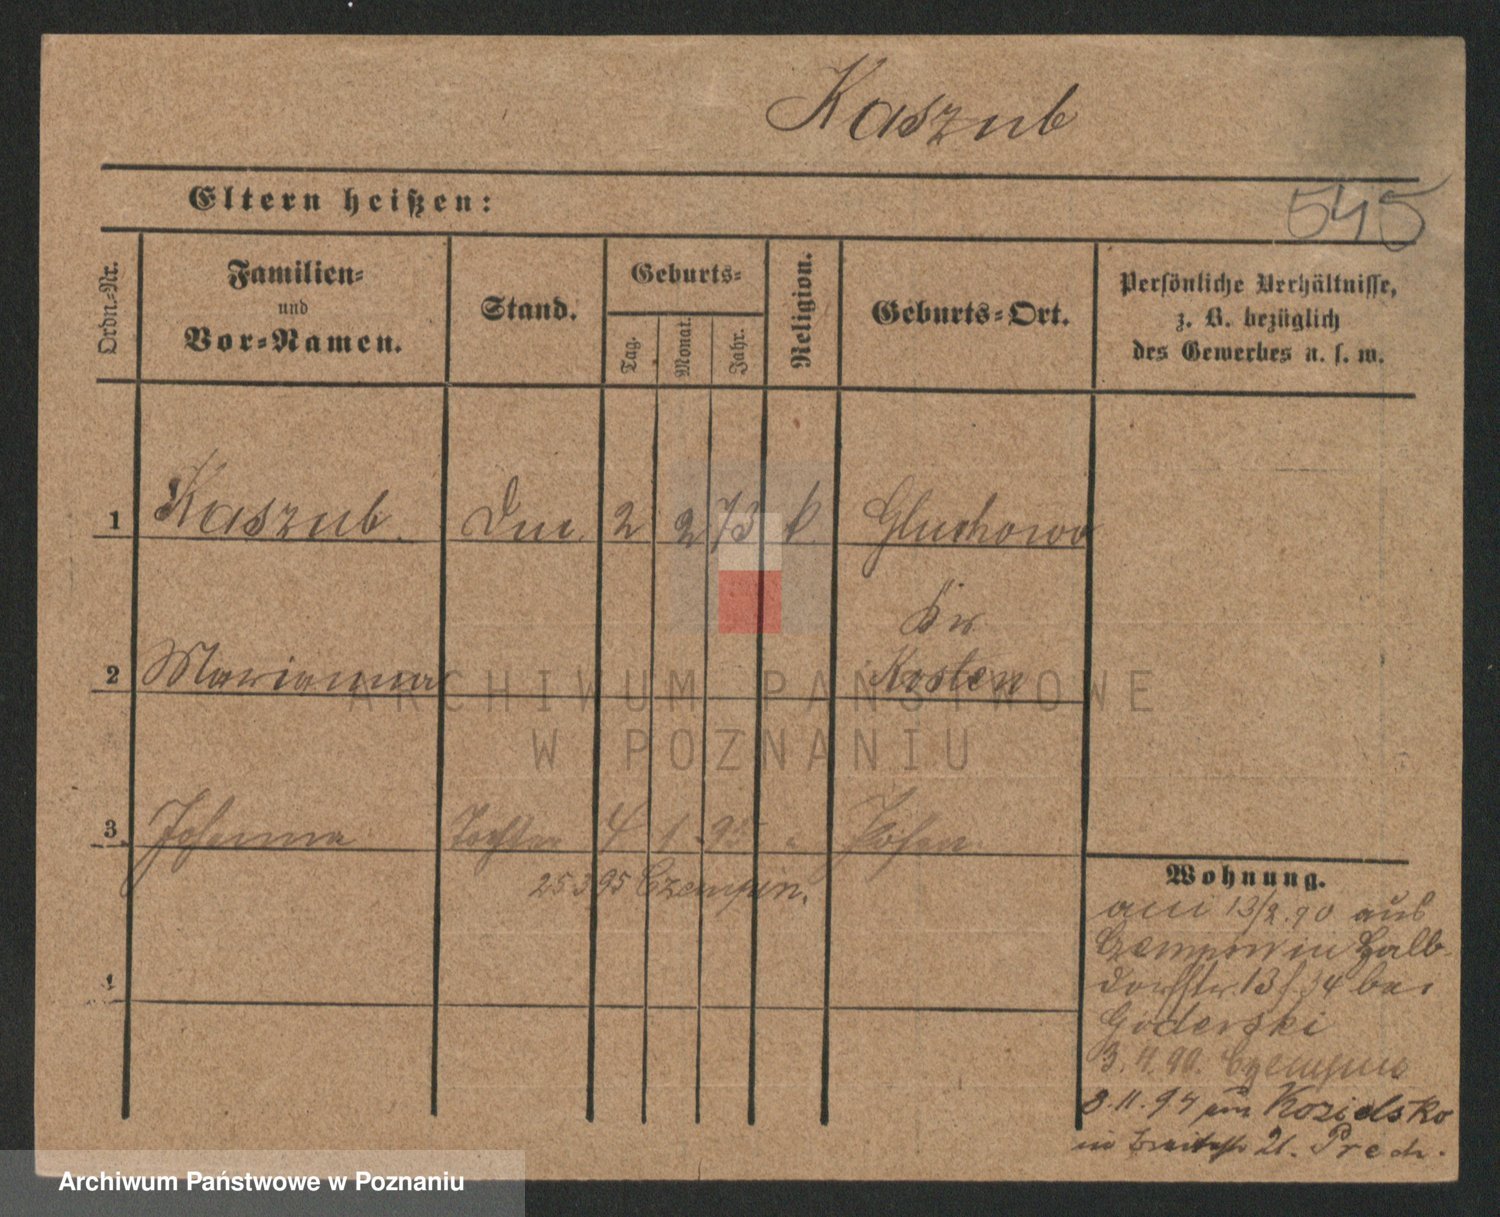 Kaszub
Eltern heißen:
545
Ordn.-Nr.
Familien- und Vor-Namen.
Stand.
Geburts-
Tag.
Monat.
Jahr.
Religion.
Geburts-Ort.
Persönliche Verhältnisse,
z. B. bezüglich
des Gewerbes u. s. w.
1 Kaszub. 2 2 73 k. Gluchowo
Kr
2 Marianna Kosten
ARCHIWUM PAŃSTWOWE
W POZNANIU
3 Johanna Tochter 4 1. 95 Posen.
25 3 95 Czempin.
4
Wohnung.
am 13/2. 90 aus
Czempin in Halb-
dorfstr. 13/34 bei
Goderski
3. 4. 90. Czempin
8. 11. 94 Kozielsko
in 21.
Archiwum Państwowe w Poznaniu